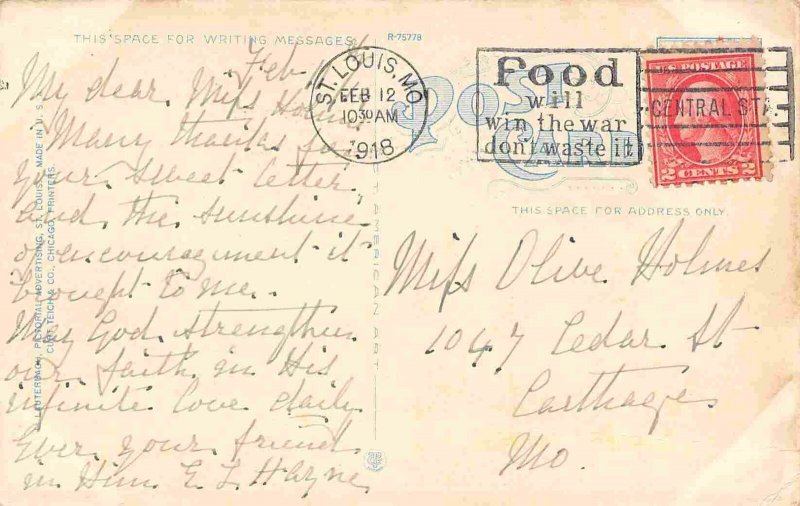 THIS SPACE FOR WRITING MESSAGES
R-75778
Feb
My dear Miss Holmes
Many thanks for
your sweet letter
and the sunshine
of encouragement it
brought to me.
May God strengthen
our faith in His
infinite love daily
Ever your friend
in Him. E L Hayne
E. LAUTERBACH, PICTORIAL ADVERTISING, ST. LOUIS. MADE IN U. S.
CURT TEICH & CO., CHICAGO, PRINTERS.
AMERICAN ART
ST. LOUIS, MO.
FEB 12
10 30 AM
1918
POST
CARD
Food
will
win the war
don't waste it
CENTRAL STA.
U.S. POSTAGE
2 CENTS 2
THIS SPACE FOR ADDRESS ONLY.
Miss Olive Holmes
1047 Cedar St
Carthage
Mo.